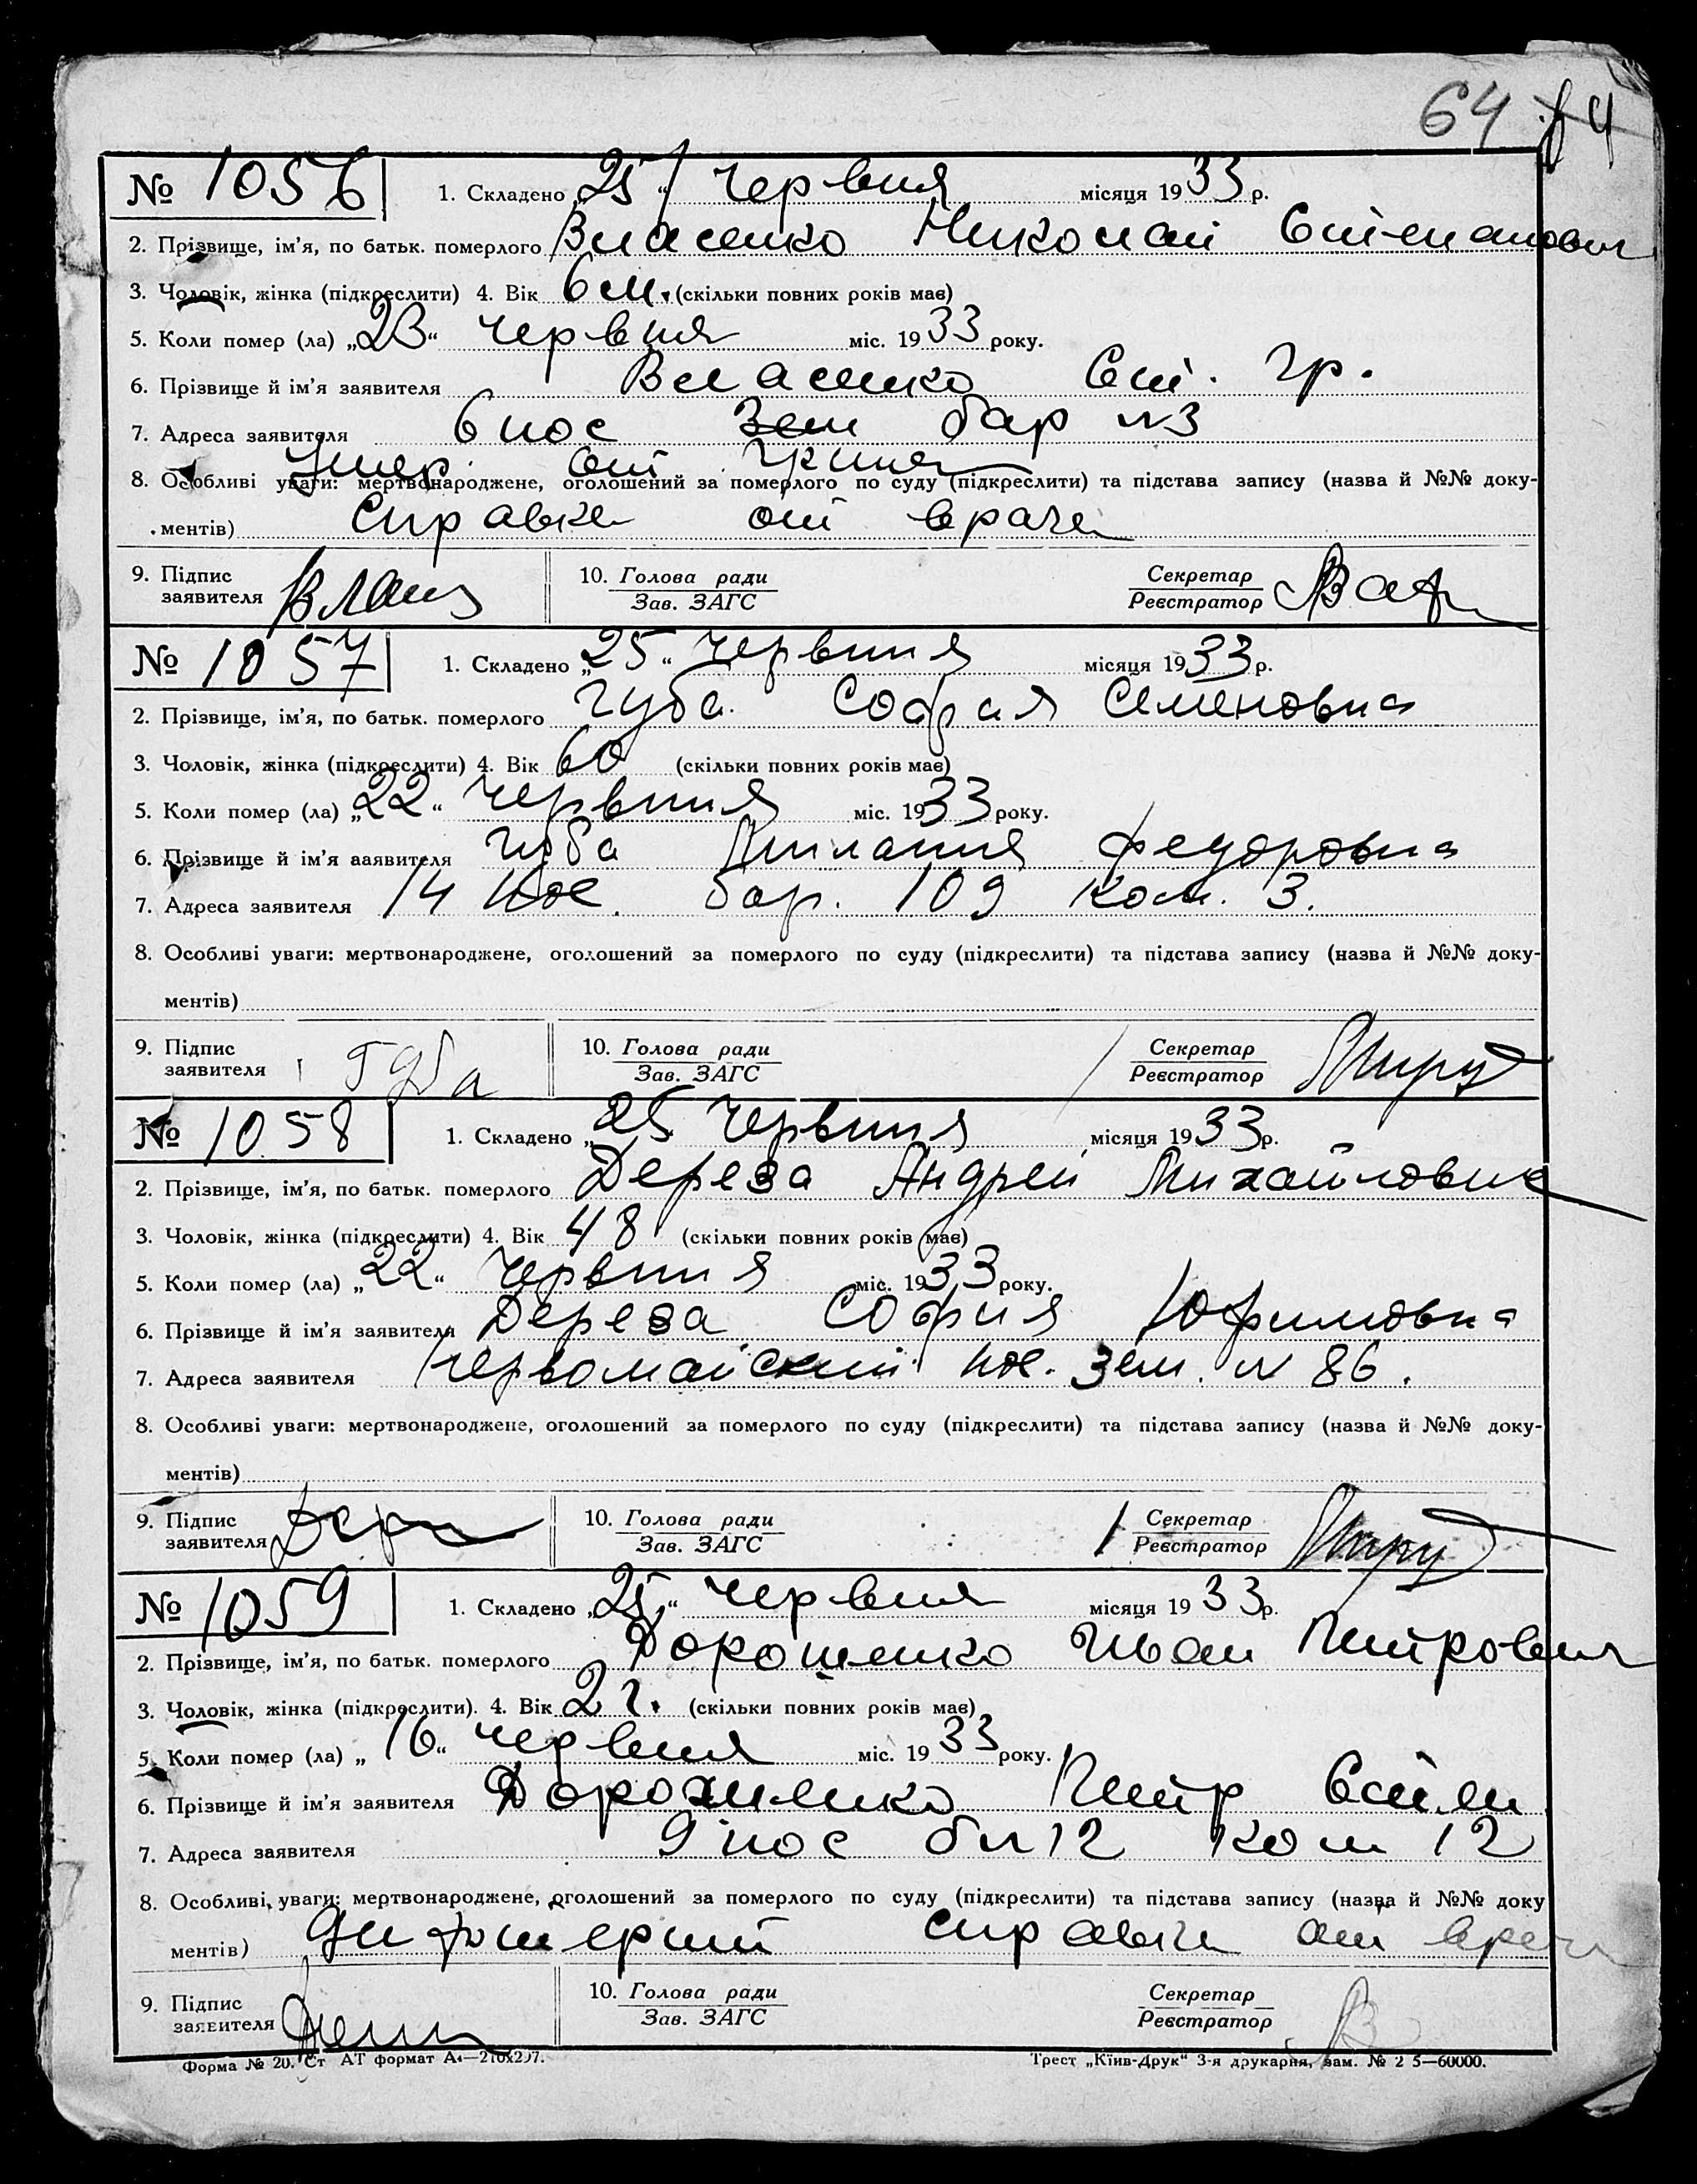 64
№ 1056 1. Складено „25“ червня місяця 1933 р.
2. Прізвище, ім’я, по батьк. померлого Власенко Николай Степанович
3. Чоловік, жінка (підкреслити) 4. Вік 6 м. (скільки повних років має)
5. Коли помер (ла) „23“ червня міс. 1933 року.
6. Прізвище й ім’я заявителя Власенко Ст. Гр.
7. Адреса заявителя 6 пос Зем бар №3
Умер. от
8. Особливі уваги: мертвонароджене, оголошений за померлого по суду (підкреслити) та підстава запису (назва й №№ доку-
ментів) Справка от врача
9. Підпис заявителя 10. Голова ради Секретар
Зав. ЗАГС Реєстратор
№ 1057 1. Складено „25“ червння місяця 1933 р.
2. Прізвище, ім’я, по батьк. померлого Губа София Семеновна
3. Чоловік, жінка (підкреслити) 4. Вік 60 (скільки повних років має)
5. Коли помер (ла) „22“ червння міс. 1933 року.
6. Прізвище й ім’я заявителя Губа Федоровна
7. Адреса заявителя 14 пос. бар. 109 ком. 3.
8. Особливі уваги: мертвонароджене, оголошений за померлого по суду (підкреслити) та підстава запису (назва й №№ доку-
ментів)
9. Підпис заявителя Губа 10. Голова ради Секретар
Зав. ЗАГС Реєстратор
№ 1058 1. Складено „25 червння місяця 1933 р.
2. Прізвище, ім’я, по батьк. померлого Дереза Андрей Михайлович
3. Чоловік, жінка (підкреслити) 4. Вік 48 (скільки повних років має)
5. Коли помер (ла) „22“ червння міс. 1933 року.
6. Прізвище й ім’я заявителя Дереза София Юфимовна
7. Адреса заявителя Червомайский пос. зем. № 86.
8. Особливі уваги: мертвонароджене, оголошений за померлого по суду (підкреслити) та підстава запису (назва й №№ доку-
ментів)
9. Підпис заявителя 10. Голова ради Секретар
Зав. ЗАГС Реєстратор
№ 1059 1. Складено „25“ червня місяця 1933 р.
2. Прізвище, ім’я, по батьк. померлого Дорошенко Иван Петрович
3. Чоловік, жінка (підкреслити). 4. Вік 2 г. (скільки повних років має)
5. Коли помер (ла) „16“ червня міс. 1933 року.
6. Прізвище й ім’я заявителя Дорошенко Петр
7. Адреса заявителя 9 пос б №12 ком 12
8. Особливі уваги: мертвонароджене, оголошений за померлого по суду (підкреслити) та підстава запису (назва й №№ доку
ментів) справка от врача
9. Підпис заявителя 10. Голова ради Секретар
Зав. ЗАГС Реєстратор
Форма № 20. Ст АТ формат А4—210х297. Трест „Київ-Друк“ 3-я друкарня, зам. № 2 5—60000.